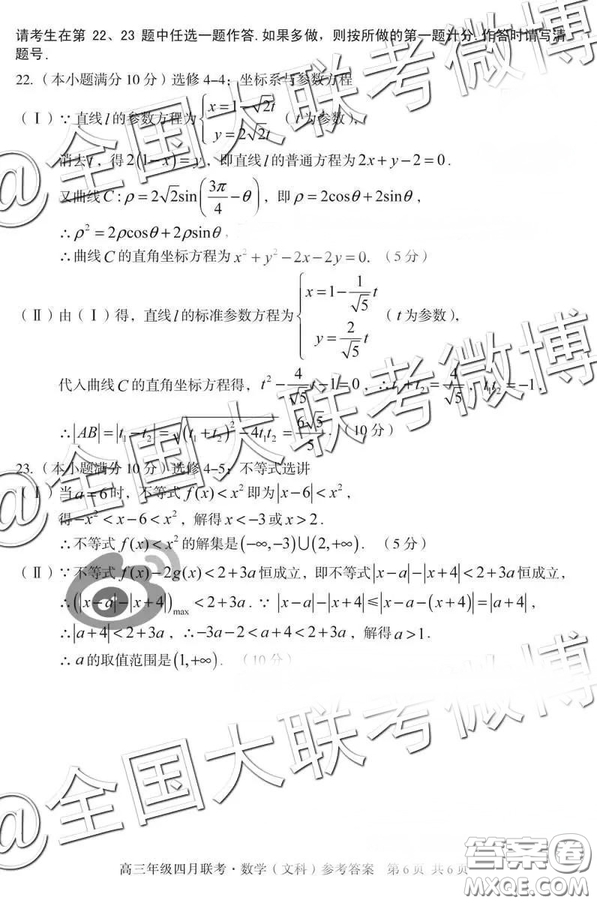 请考生在第 22、23 题中任选一题作答.如果多做，则按所做的第一题计分.作答时请写清
题号.
22.（本小题满分10分）选修4-4；坐标系与参数方程
（Ⅰ）∵直线l的参数方程为{x=1-√2t y=2√2t（t为参数），
消去t，得2(1-x)=y，即直线l的普通方程为2x+y-2=0.
又曲线C:ρ=2√2sin(3π/4-θ)，即ρ=2cosθ+2sinθ，
∴ρ²=2ρcosθ+2ρsinθ.
∴曲线C的直角坐标方程为x²+y²-2x-2y=0.（5分）
（Ⅱ）由（Ⅰ）得，直线l的标准参数方程为{x=1-1/√5 t y=2/√5 t（t为参数），
代入曲线C的直角坐标方程得，t²-4/√5 t-1=0，∴t₁+t₂=4/√5，t₁t₂=-1，
∴|AB|=|t₁-t₂|=√((t₁+t₂)²-4t₁t₂)=6√5/5.（10分）
23.（本小题满分10分）选修4-5；不等式选讲
（Ⅰ）当a=6时，不等式f(x)<x²即为|x-6|<x²，
得-x²<x-6<x²，解得x<-3或x>2.
∴不等式f(x)<x²的解集是(-∞,-3)∪(2,+∞).（5分）
（Ⅱ）∵不等式f(x)-2g(x)<2+3a恒成立，即不等式|x-a|-|x+4|<2+3a恒成立，
∴(|x-a|-|x+4|)max<2+3a.∵|x-a|-|x+4|≤|x-a-(x+4)|=|a+4|，
∴|a+4|<2+3a，∴-3a-2<a+4<2+3a，解得a>1.
∴a的取值范围是(1,+∞).（10分）
@全国大联考微博
@全国大联考微博
@全国大联考微博
高三年级四月联考·数学（文科）参考答案 第6页 共6页